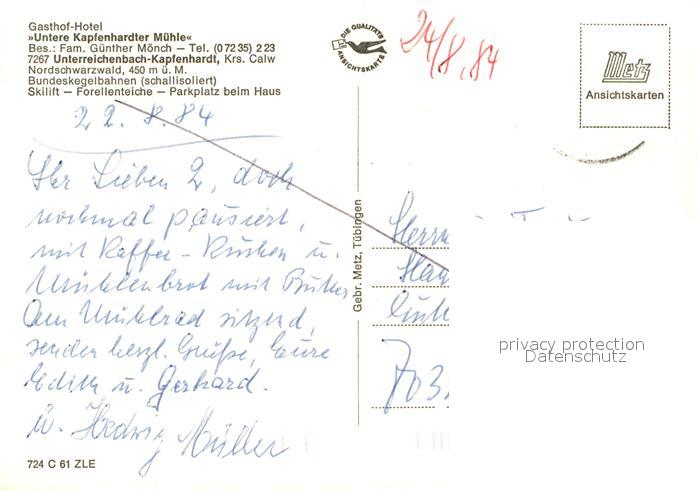 Gasthof-Hotel
»Untere Kapfenhardter Mühle«
Bes.: Fam. Günther Mönch — Tel. (0 72 35) 2 23
7267 Unterreichenbach-Kapfenhardt, Krs. Calw
Nordschwarzwald, 450 m ü. M.
Bundeskegelbahnen (schallisoliert)
Skilift — Forellenteiche — Parkplatz beim Haus
22. 8. 84
Ihr Lieben 2, doch
nochmal pausiert,
mit Kaffee - Kuchen u.
Mühlenbrot mit Butter
Am Mühlrad sitzend,
senden herzl. Grüße, Eure
Edith u. Gerhard.
u. Hedwig Müller
724 C 61 ZLE
Gebr. Metz, Tübingen
DIE QUALITÄTS
ANSICHTSKARTE
24/8.84
Metz
Ansichtskarten
Herrn
703
privacy protection
Datenschutz